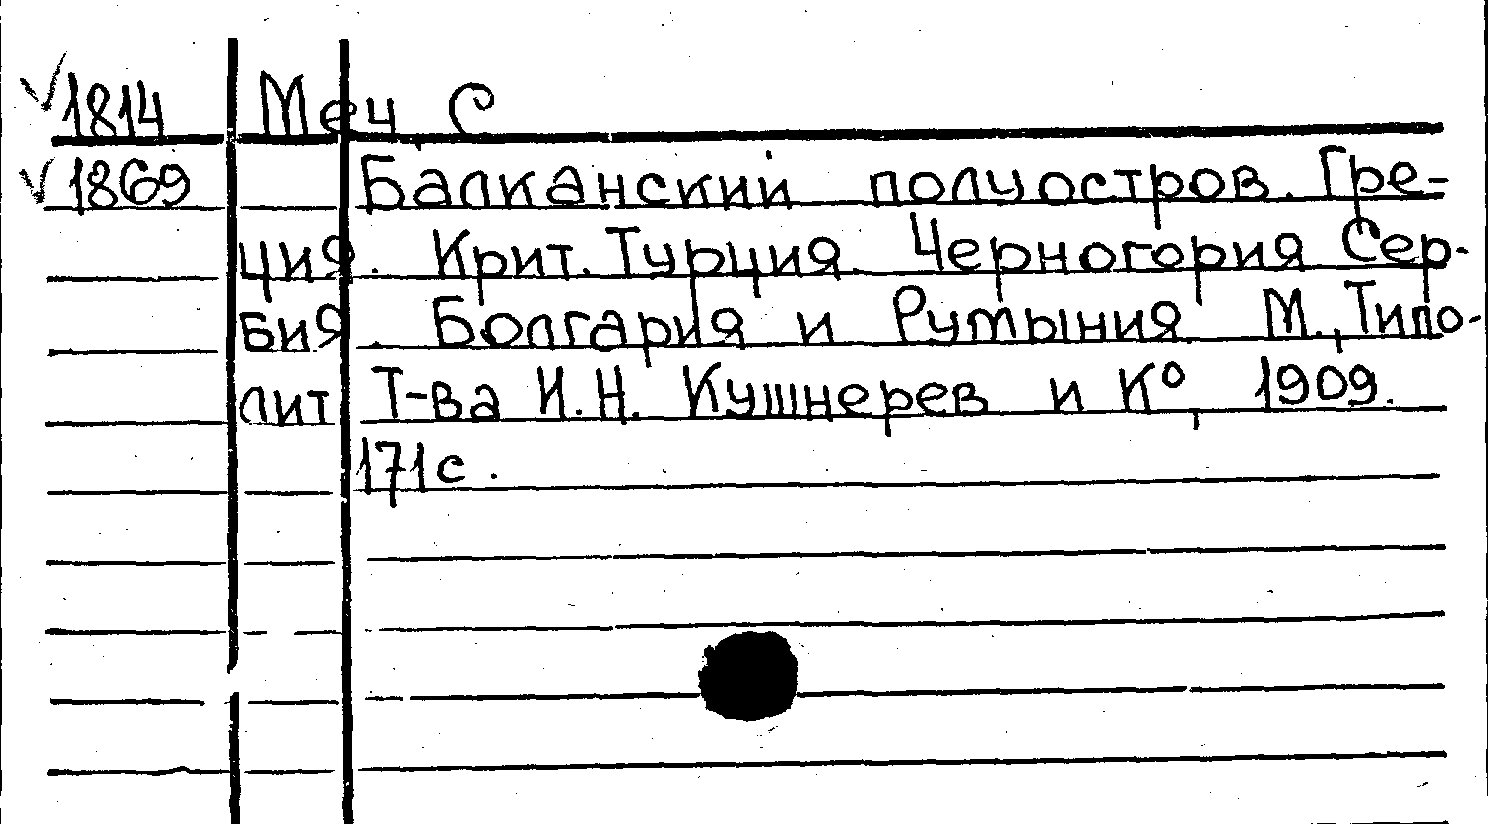 √1814 Меч, С
√1869 Балканский полуостров. Гре-
ция. Крит. Турция. Черногория Сер-
бия. Болгария и Румыния. М., Типо-
лит Т-ва И.Н. Кушнерев и К°, 1909.
171с.